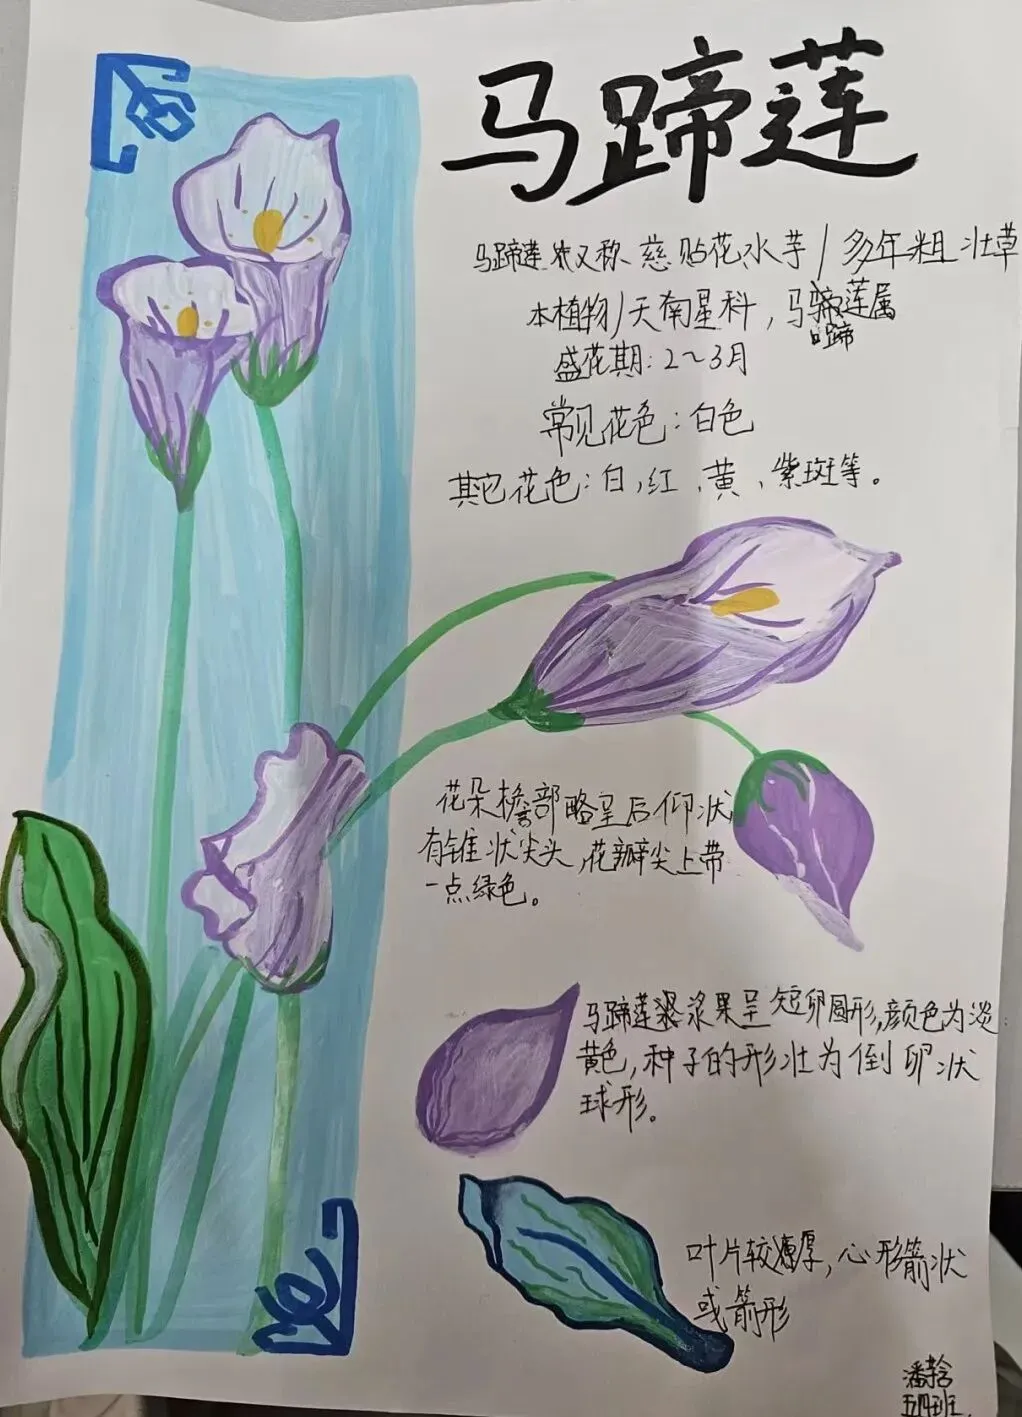 马蹄莲
马蹄莲 又称 慈贴花水芋/多年粗壮草
本植物/天南星科，马蹄莲属
盛花期：2～3月
常见花色：白色
其它花色：白，红、黄、紫斑等。
花朵檐部略呈后仰状
有锥状尖头，花瓣尖上带
一点绿色。
马蹄莲浆果呈短卵圆形，颜色为淡
黄色，种子的形壮为倒卵状
球形。
叶片较厚，心形箭状
或箭形
潘
五四班